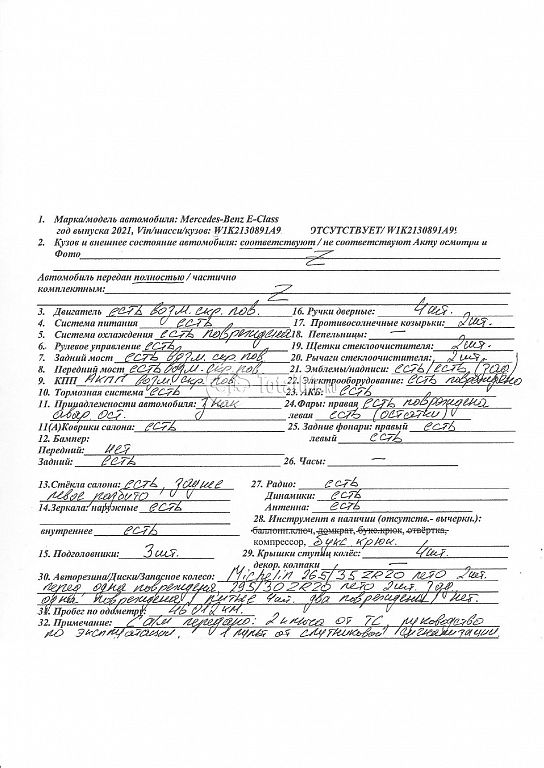 1. Марка/модель автомобиля: Mercedes-Benz E-Class
год выпуска 2021, Vin/шасси/кузов: W1K2130891A9 ОТСУТСТВУЕТ/ W1K2130891A9
2. Кузов и внешнее состояние автомобиля: соответствуют / не соответствуют Акту осмотра и
Фото Z
Автомобиль передан полностью / частично
комплектным: Z
3. Двигатель есть возм. скр. пов. 16. Ручки дверные: 4 шт.
4. Система питания есть 17. Противосолнечные козырьки: 2шт.
5. Система охлаждения есть повреждена 18. Пепельницы: —
6. Рулевое управление есть 19. Щетки стеклоочистителя: 2шт.
7. Задний мост есть возм. скр. пов. 20. Рычаги стеклоочистителя: 2шт.
8. Передний мост есть возм. скр. пов. 21. Эмблемы/надписи: есть/есть (зад)
9. КПП АКПП возм. скр. пов. 22. Электрооборудование: есть повреждено
10. Тормозная система есть 23. АКБ: есть
11. Принадлежности автомобиля: знак 24. Фары: правая есть повреждена
авар. ост. левая есть (остатки)
11(А)Коврики салона: есть 25. Задние фонари: правый есть
12. Бампер: левый есть
Передний: нет
Задний: есть 26. Часы: —
13.Стёкла салона: есть, заднее 27. Радио: есть
левое разбито Динамики: есть
14.Зеркала: наружные есть Антенна: есть
28. Инструмент в наличии (отсутств.- вычеркн.):
внутреннее есть баллонн.ключ, домкрат, букс.крюк, отвёртка,
компрессор, букс крюк.
15. Подголовники: 3шт. 29. Крышки ступиц колёс: 4шт.
декор. колпаки —
30. Авторезина/Диски/Запасное колесо: Michelin 265/35 ZR20 лето 2шт.
перед одна повреждена 295/30 ZR20 лето 2шт. зад
одна повреждена/ литые 4шт. два повреждены/ нет.
31. Пробег по одометру:
32. Примечание: С а/м передано: 2 ключа от ТС, руководство
по эксплуатации, 1 пульт от спутниковой сигнализации